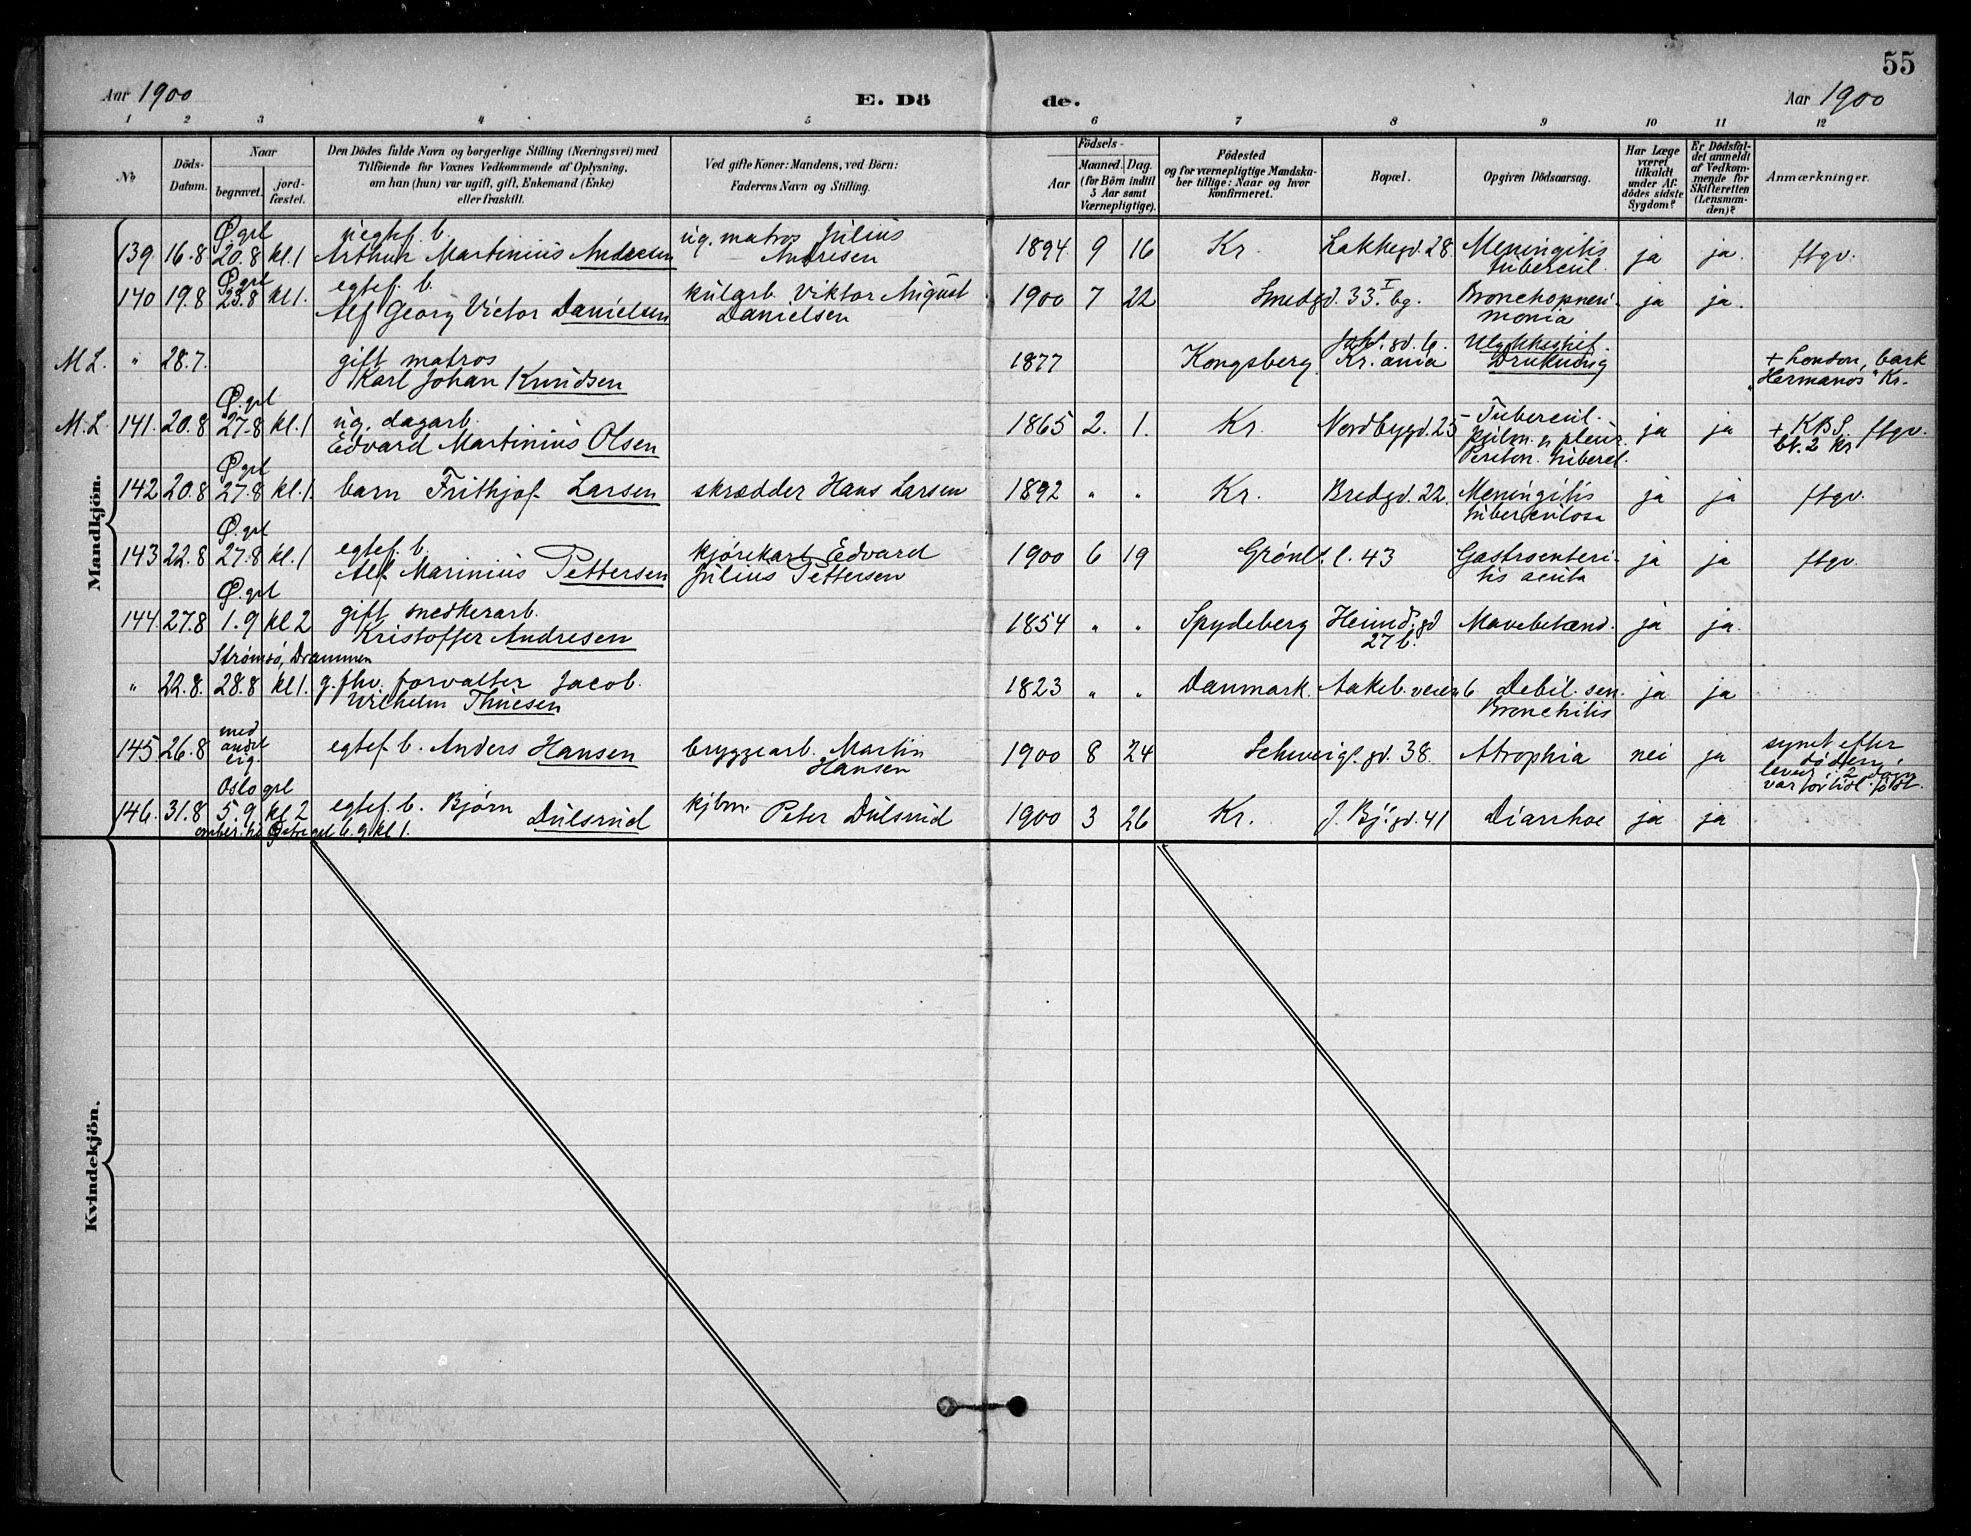 55
Aar 1900 E. Dö de. Aar 1900
1 2 3 4 5 6 7 8 9 10 11 12
No
Döds-Datum.
Naar
begravet. jord-fæstet.
Den Dödes fulde Navn og borgerlige Stilling (Næringsvei) med
Tilföiende for Voxnes Vedkommende af Oplysning,
om han (hun) var ugift, gift, Enkemand (Enke)
eller fraskilt.
Ved gifte Koner: Mandens, ved Börn:
Faderens Navn og Stilling.
Födsels-
Aar Maaned. Dag.
(for Börn indtil
5 Aar samt
Værnepligtige).
Födested
og for værnepligtige Mandska-
ber tillige: Naar og hvor
konfirmeret.
Bopæl.
Opgiven Dödsaarsag.
Har Læge
været
tilkaldt
under Af-
dödes sidste
Sygdom?
Er Dödsfal-
det anmeldt
af Vedkom-
mende for
Skifteretten
(Lensman-
den)?
Anmærkninger.
Mandkjön.
Ø.grl uegtef. b. ug. matros Julius
139 16.8 20.8 kl.1 Arthur Martinius Andresen Andresen 1894 9 16 Kr. Lakkegd. 28. Meningitis tubercul. ja ja. ftgv.
Ø.grl egtef. b.
140 19.8 23.8 kl 1. Alf Georg Victor Danielsen kularb. Viktor August Danielsen 1900 7 22 Smedgd. 33. I bg. Bronchopneumonia ja ja.
M L. " 28.7. gift matros Karl Johan Knudsen 1877 Kongsberg gd. 6. Kr.ania Ulykkeshit. Drukning + London, bark "Hermanos" Kr.
Ø.grl
M.L. 141. 20.8 27.8 kl.1 ug. dagarb. Edvard Martinius Olsen 1865 2. 1. Kr. Nordbygd. 25 Tubercul. pulm. & pleur. Periton. tubercl. ja ja + KBS. ftgv. bl. 2 Kr
Ø.grl
142 20.8 27.8 kl.1. barn Frithjof Larsen skrædder Hans Larsen 1892 " " Kr. Bredgd. 22. Meningitis tuberculosa ja ja ftgv.
Ø.grl
143 22.8 27.8 kl.1 egtef. b. Alf Marinius Pettersen kjørekarl Edvard Julius Pettersen 1900 6 19 Grønl. l. 43 Gastroenteritis acuta ja ja ftgv.
Ø.grl
144. 27.8 1.9 kl 2 gift snedkerarb. Kristoffer Andresen 1854 " " Spydeberg Heimd. gd 27 b. Mavebetænd. ja ja.
Strømsö, Drammen
" 22.8. 28.8 kl 1. g. fhv. forvalter Jacob Wilhelm Thuesen 1823 " " Danmark. Aakeb.veien 6 Debil. sen. Bronchitis ja ja
145 26.8 med andet lig. egtef. b. Anders Hansen bryggearb. Martin Hansen 1900 8 24 Schweig. gd. 38. Atrophia nei ja synet efter döden,
Oslo grl
146. 31.8 5.9 kl 2 egtef. b. Bjørn Dulsrud kjbm. Peter Dulsrud 1900 3 26 Kr. J. Bj. gd. 41 Diarrhoe ja ja
6.9 kl 1.
Kvindekjön.